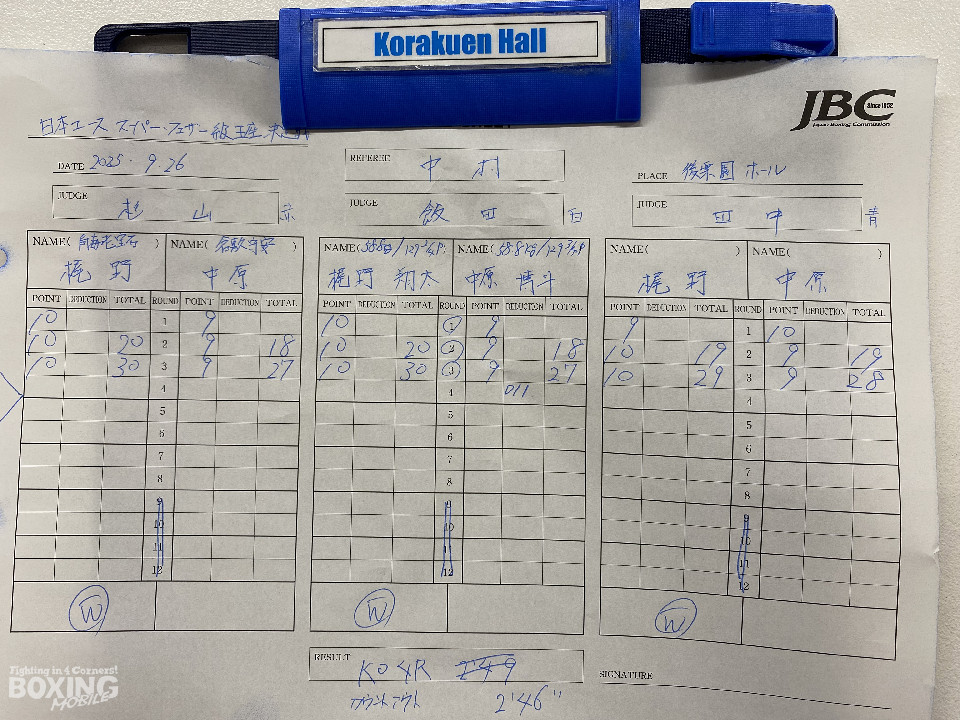 Korakuen Hall
JBC Since 1952
Japan Boxing Commission
日本ユース スーパー・フェザー級王座
DATE 2025.9.26
REFEREE 中村
PLACE 後楽園ホール
JUDGE 杉山 赤
JUDGE 飯田 白
JUDGE 田中 青
NAME( ) NAME( )
梶野 中原
NAME(58.8kg/129 3/4P) NAME(58.8kg/129 3/4P)
梶野 翔太 中原 慎斗
NAME( ) NAME( )
梶野 中原
POINT DEDUCTION TOTAL ROUND POINT DEDUCTION TOTAL
10 1 9
10 20 2 9 18
10 30 3 9 27
4
5
6
7
8
9
10
11
12
W
POINT DEDUCTION TOTAL ROUND POINT DEDUCTION TOTAL
10 1 9
10 20 2 9 18
10 30 3 9 27
4 D11
5
6
7
8
9
10
11
12
W
POINT DEDUCTION TOTAL ROUND POINT DEDUCTION TOTAL
9 1 10
10 19 2 9 19
10 29 3 9 28
4
5
6
7
8
9
10
11
12
W
RESULT KO 4R
カウントアウト 2'46"
SIGNATURE
Fighting in 4 Corners!
BOXING
MOBILE